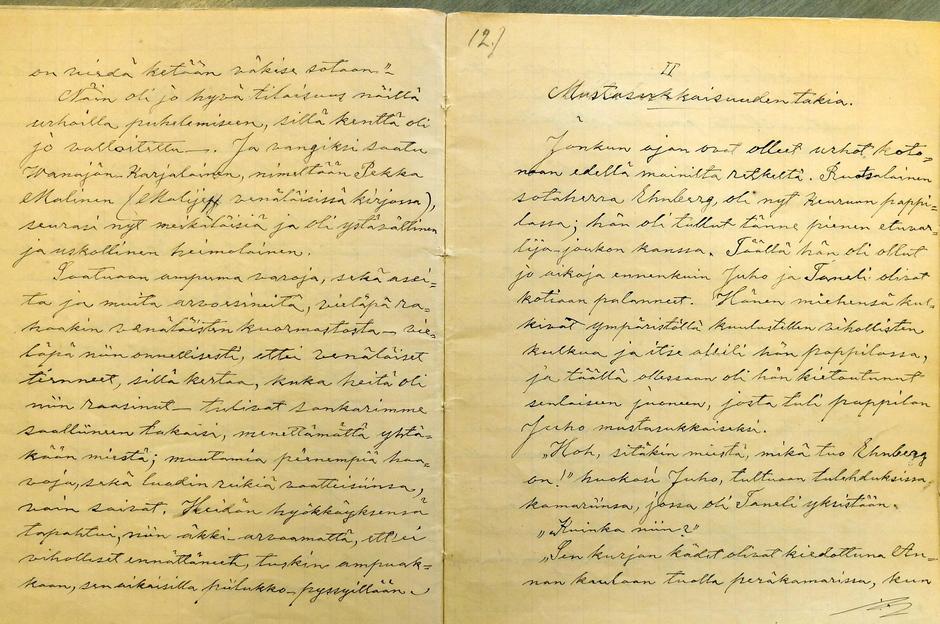 on viedä ketään väkise sotaan."
Näin oli jo hyvä tilaisuus näillä
urhoilla puhelemiseen, sillä kenttä oli
jo valloitettu. Ja vangiksi saatu
Wanajan Karjalainen, nimeltään Pekka
Malinen (Malijeff venäläisissä kirjoissa),
seurasi nyt meikäläisiä ja oli ystävällinen
ja uskollinen heimolainen.
Saatuaan ampuma varoja, sekä asei-
ta ja muita arvoesineitä, vieläpä ra-
haakin venäläisten kuormastosta – vie-
läpä niin onnellisesti, ettei venäläiset
tienneet, sillä kertaa, kuka heitä oli
niin raasinut – tulivat sankarimme
saalliineen takaisi, menettämättä yhtä-
kään miestä; muutamia pienempiä haa-
voja, sekä luodin reikiä vaatteisiinsa,
vain saivat. Heidän hyökkäyksensä
tapahtui, niin äkki-arvaamatta, ettei
viholliset ennättäneet, tuskin ampuak-
kaan, sen aikaisilla piilukko-pyssyillään.
12.)
II
Mustasukkaisuuden takia.
Jonkun ajan ovat olleet urhot koto-
naan edellä mainitta retkeltä. Ruotsalainen
sotaherra Ehnberg, oli nyt Keuruun pappi-
lassa; hän oli tullut tänne pienen etuvar-
tija-joukon kanssa. Täällä hän oli ollut
jo aikoja ennenkuin Juho ja Taneli olivat
kotiaan palanneet. Hänen miehensä kul-
kivat ympäristöllä kuulustellen vihollisten
kulkua ja itse oleili hän pappilassa,
ja täällä ollessaan oli hän kietoutunut
senlaiseen juoneen, josta tuli pappilan
Juho mustasukkaiseksi.
„Hoh, sitäkin miestä, mikä tuo Ehnberg
on!" huokasi Juho, tultuaan tulehduksissa
kamariinsa, jossa oli Taneli yksistään.
„Kuinka niin?"
„Sen kurjan kädet olivat kiedottuna An-
nan kaulaan tuolla peräkamarissa, kun